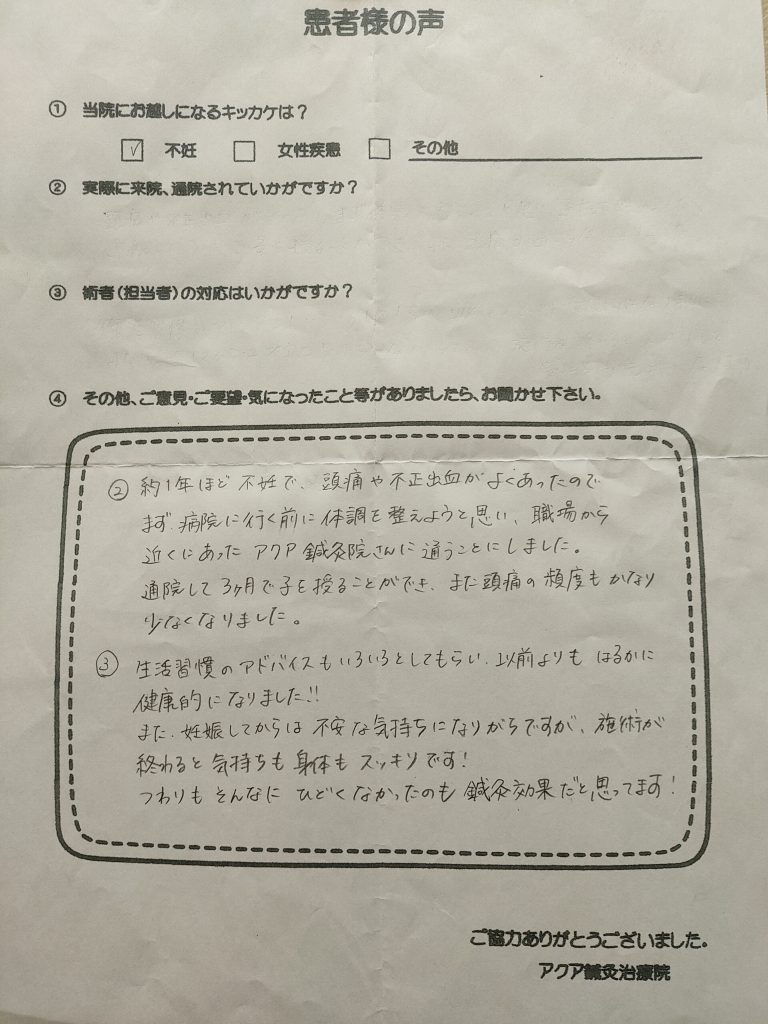 患者様の声
① 当院にお越しになるキッカケは？
☑ 不妊 □ 女性疾患 □ その他
② 実際に来院、通院されていかがですか？
③ 術者（担当者）の対応はいかがですか？
④ その他、ご意見・ご要望・気になったこと等がありましたら、お聞かせ下さい。
② 約1年ほど不妊で、頭痛や不正出血がよくあったので
まず病院に行く前に体調を整えようと思い、職場から
近くにあったアクア鍼灸院さんに通うことにしました。
通院して3ヶ月で子を授ることができ、また頭痛の頻度もかなり
少なくなりました。
③ 生活習慣のアドバイスもいろいろとしてもらい、以前よりもはるかに
健康的になりました!!
また、妊娠してからは不安な気持ちになりがちですが、施術が
終わると気持ちも身体もスッキリです!
つわりもそんなにひどくなかったのも鍼灸効果だと思ってます!
ご協力ありがとうございました。
アクア鍼灸治療院